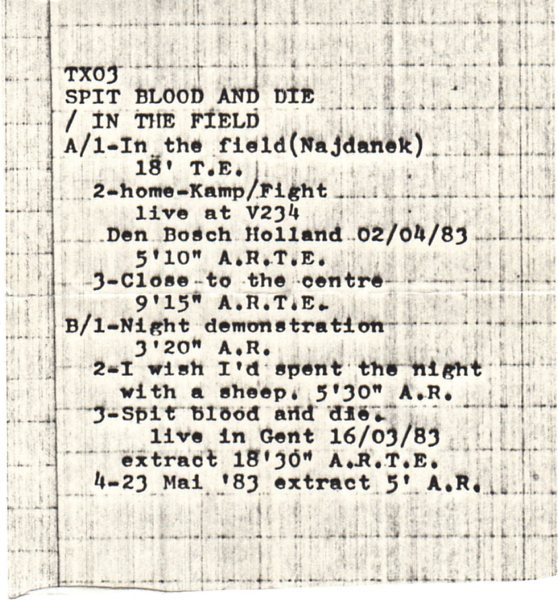 TX03
SPIT BLOOD AND DIE
/ IN THE FIELD
A/1-In the field(Najdanek)
18' T.E.
2-home-Kamp/Fight
live at V234
Den Bosch Holland 02/04/83
5'10" A.R.T.E.
3-Close to the centre
9'15" A.R.T.E.
B/1-Night demonstration
3'20" A.R.
2-I wish I'd spent the night
with a sheep. 5'30" A.R.
3-Spit blood and die.
live in Gent 16/03/83
extract 18'30" A.R.T.E.
4-23 Mai '83 extract 5' A.R.